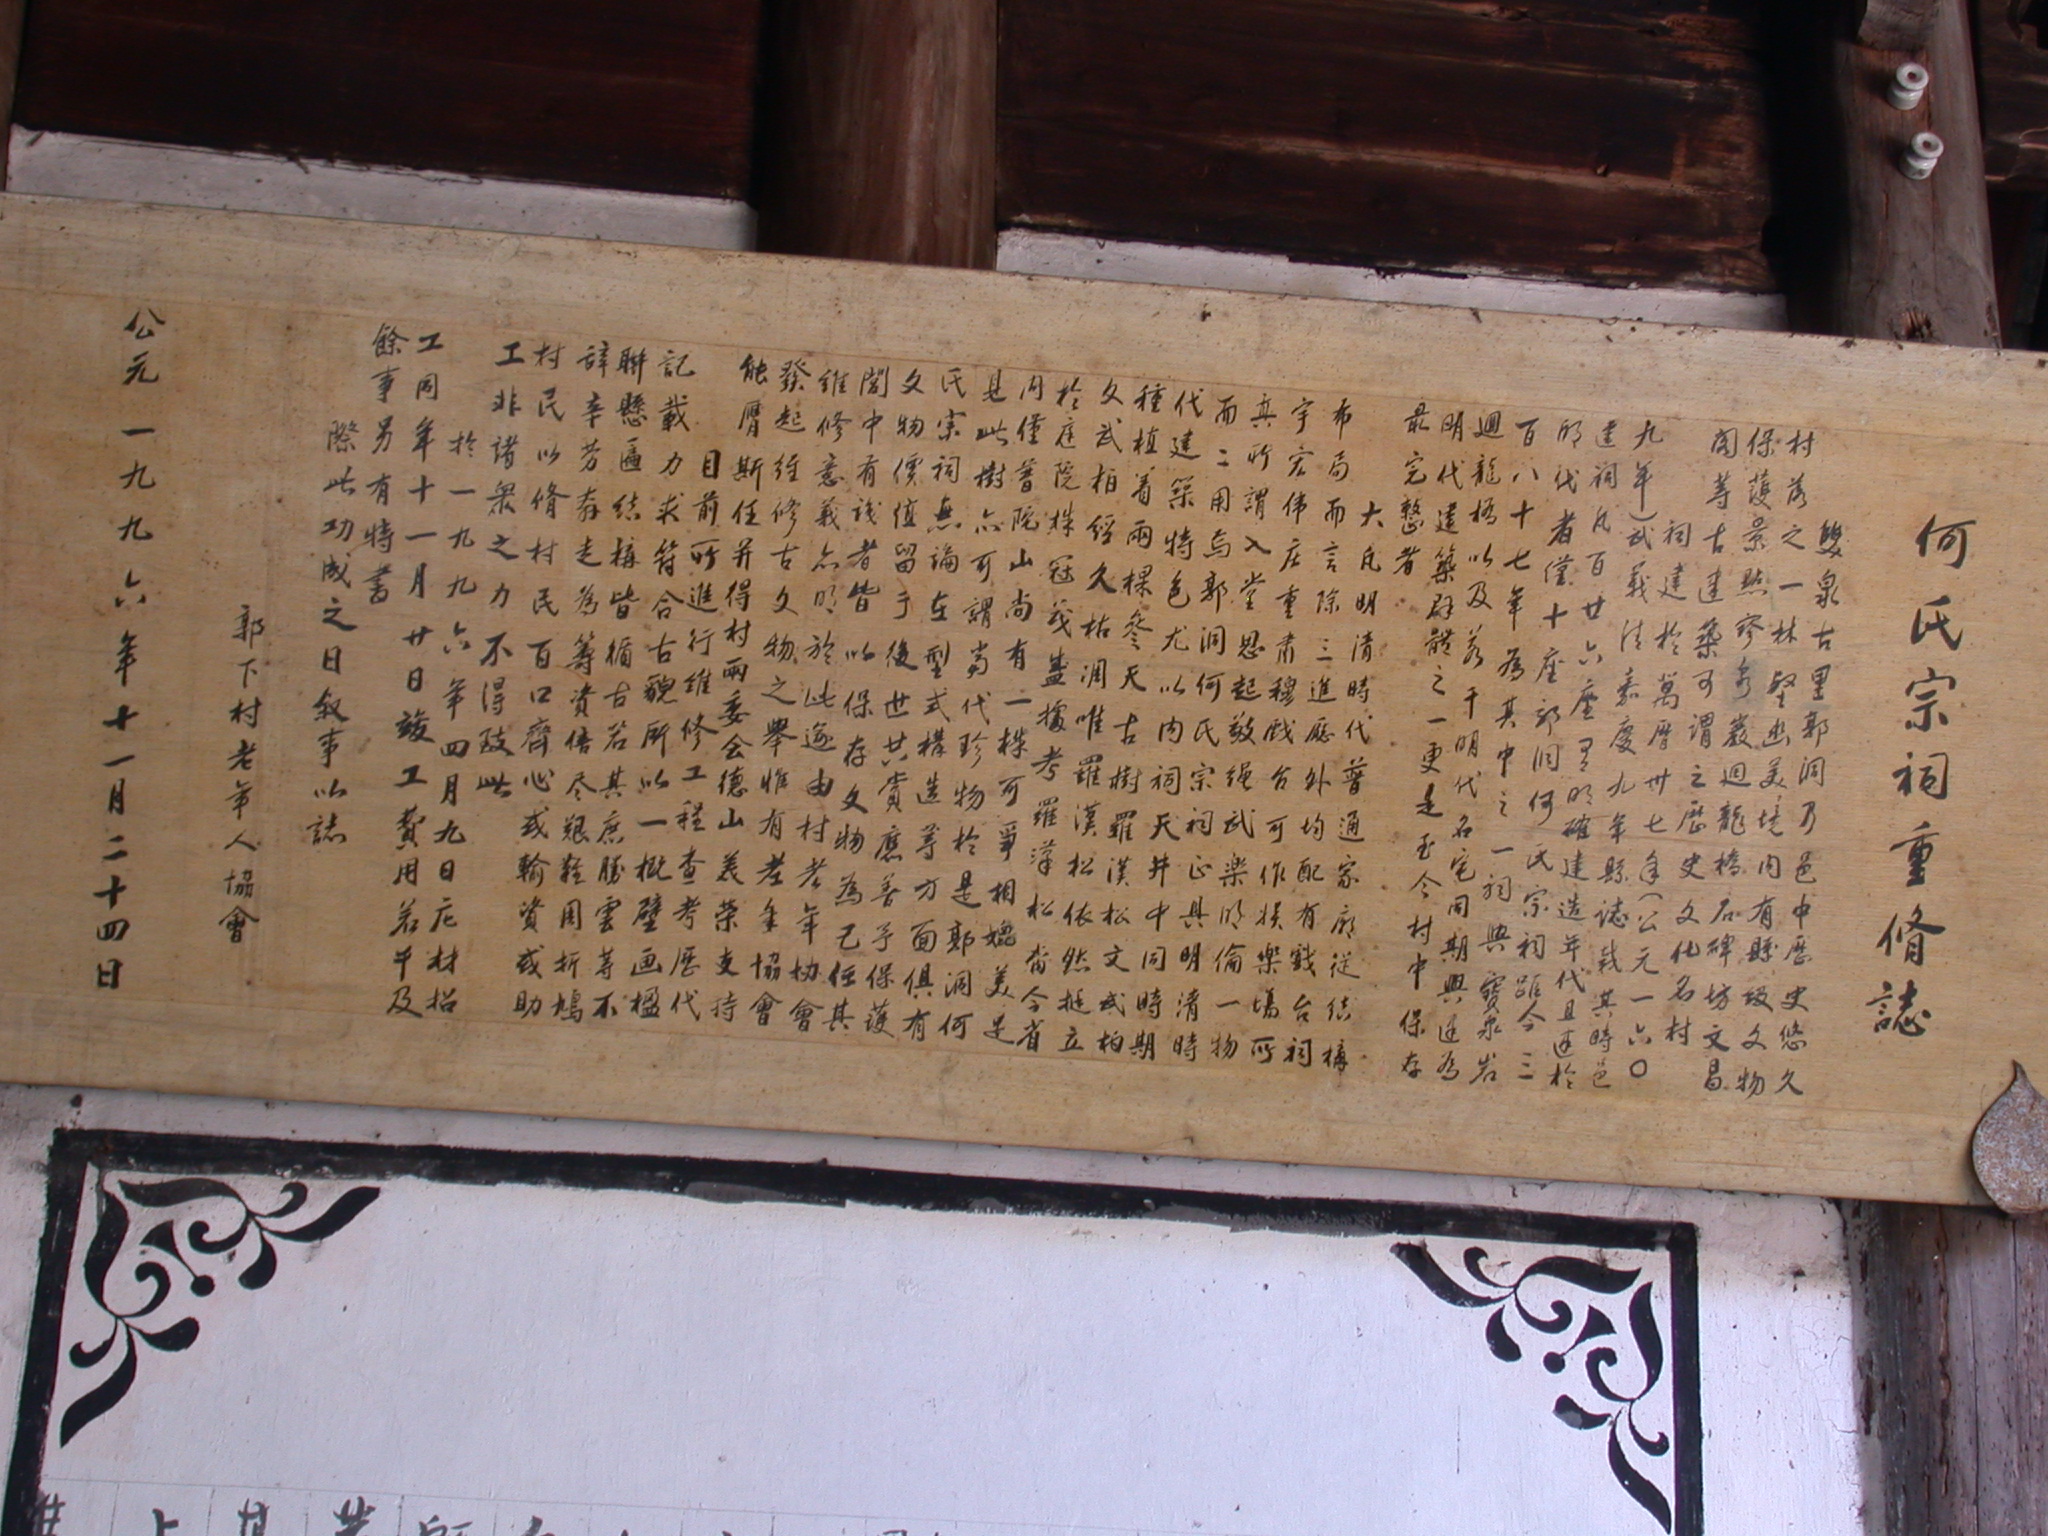 何氏宗祠重脩誌
雙泉古里郭洞乃邑中歷史悠久
村落之一林壑幽美境內有縣級文物
保護景點寥多巖迴龍橋石碑坊文昌
閣等古建築可謂之歷史文化名村
祠建於萬曆卅七年(公元一六〇
九年)武義清嘉慶九年縣誌載其時邑
建祠凡百廿六座其明確建造年代且建於
明代者僅十座郭洞何氏宗祠距今三
百八十七年為其中之一祠與寶泉岩
迴龍橋以及若干明代名宅同期興建為
明代建築群體之一更是至今村中保存
最完整者
大凡明清時代普通家廟從結構
布局而言除三進廳外均配有戲台祠
宇宏伟庄重肅穆戲台可作娛樂場所
真所謂入堂思起敬绳武楽明倫一物
而二用焉郭洞何氏宗祠正具明清時
代建築特色尤以內祠天井中同時期
種植着兩棵參天古樹羅漢松文武柏
文武柏經久枯凋唯羅漢松依然挺立
於庭院株冠茂盛據考羅漢松當今省
內僅普院山尚有一株可爭相媲美足
見此樹亦可謂當代珍物於是郭洞何
氏宗祠無論在型式構造等方面俱有
文物價值留于後世共賞應善予保護
閣中有識者皆以保存文物為己任其
維修意義亦明於此遂由村老年協會
發起維修古文物之舉惟有老年協會
能膺斯任并得村兩委会德山美荣支持
目前所進行維修工程查考歷代
記載力求符合古貌所以一概壁画楹
聯懸匾結構皆循古若其庶勝雲等不
辞辛劳奔走為籌資倍尽艱難周折鳩
村民以脩村民百口齊心或輸資或助
工非諸衆之力不得致此
於一九九六年四月九日庀材招
工同年十一月廿日竣工費用若干及
餘事另有特書
際此功成之日叙事以誌
郭下村老年人協會
公元一九九六年十一月二十四日